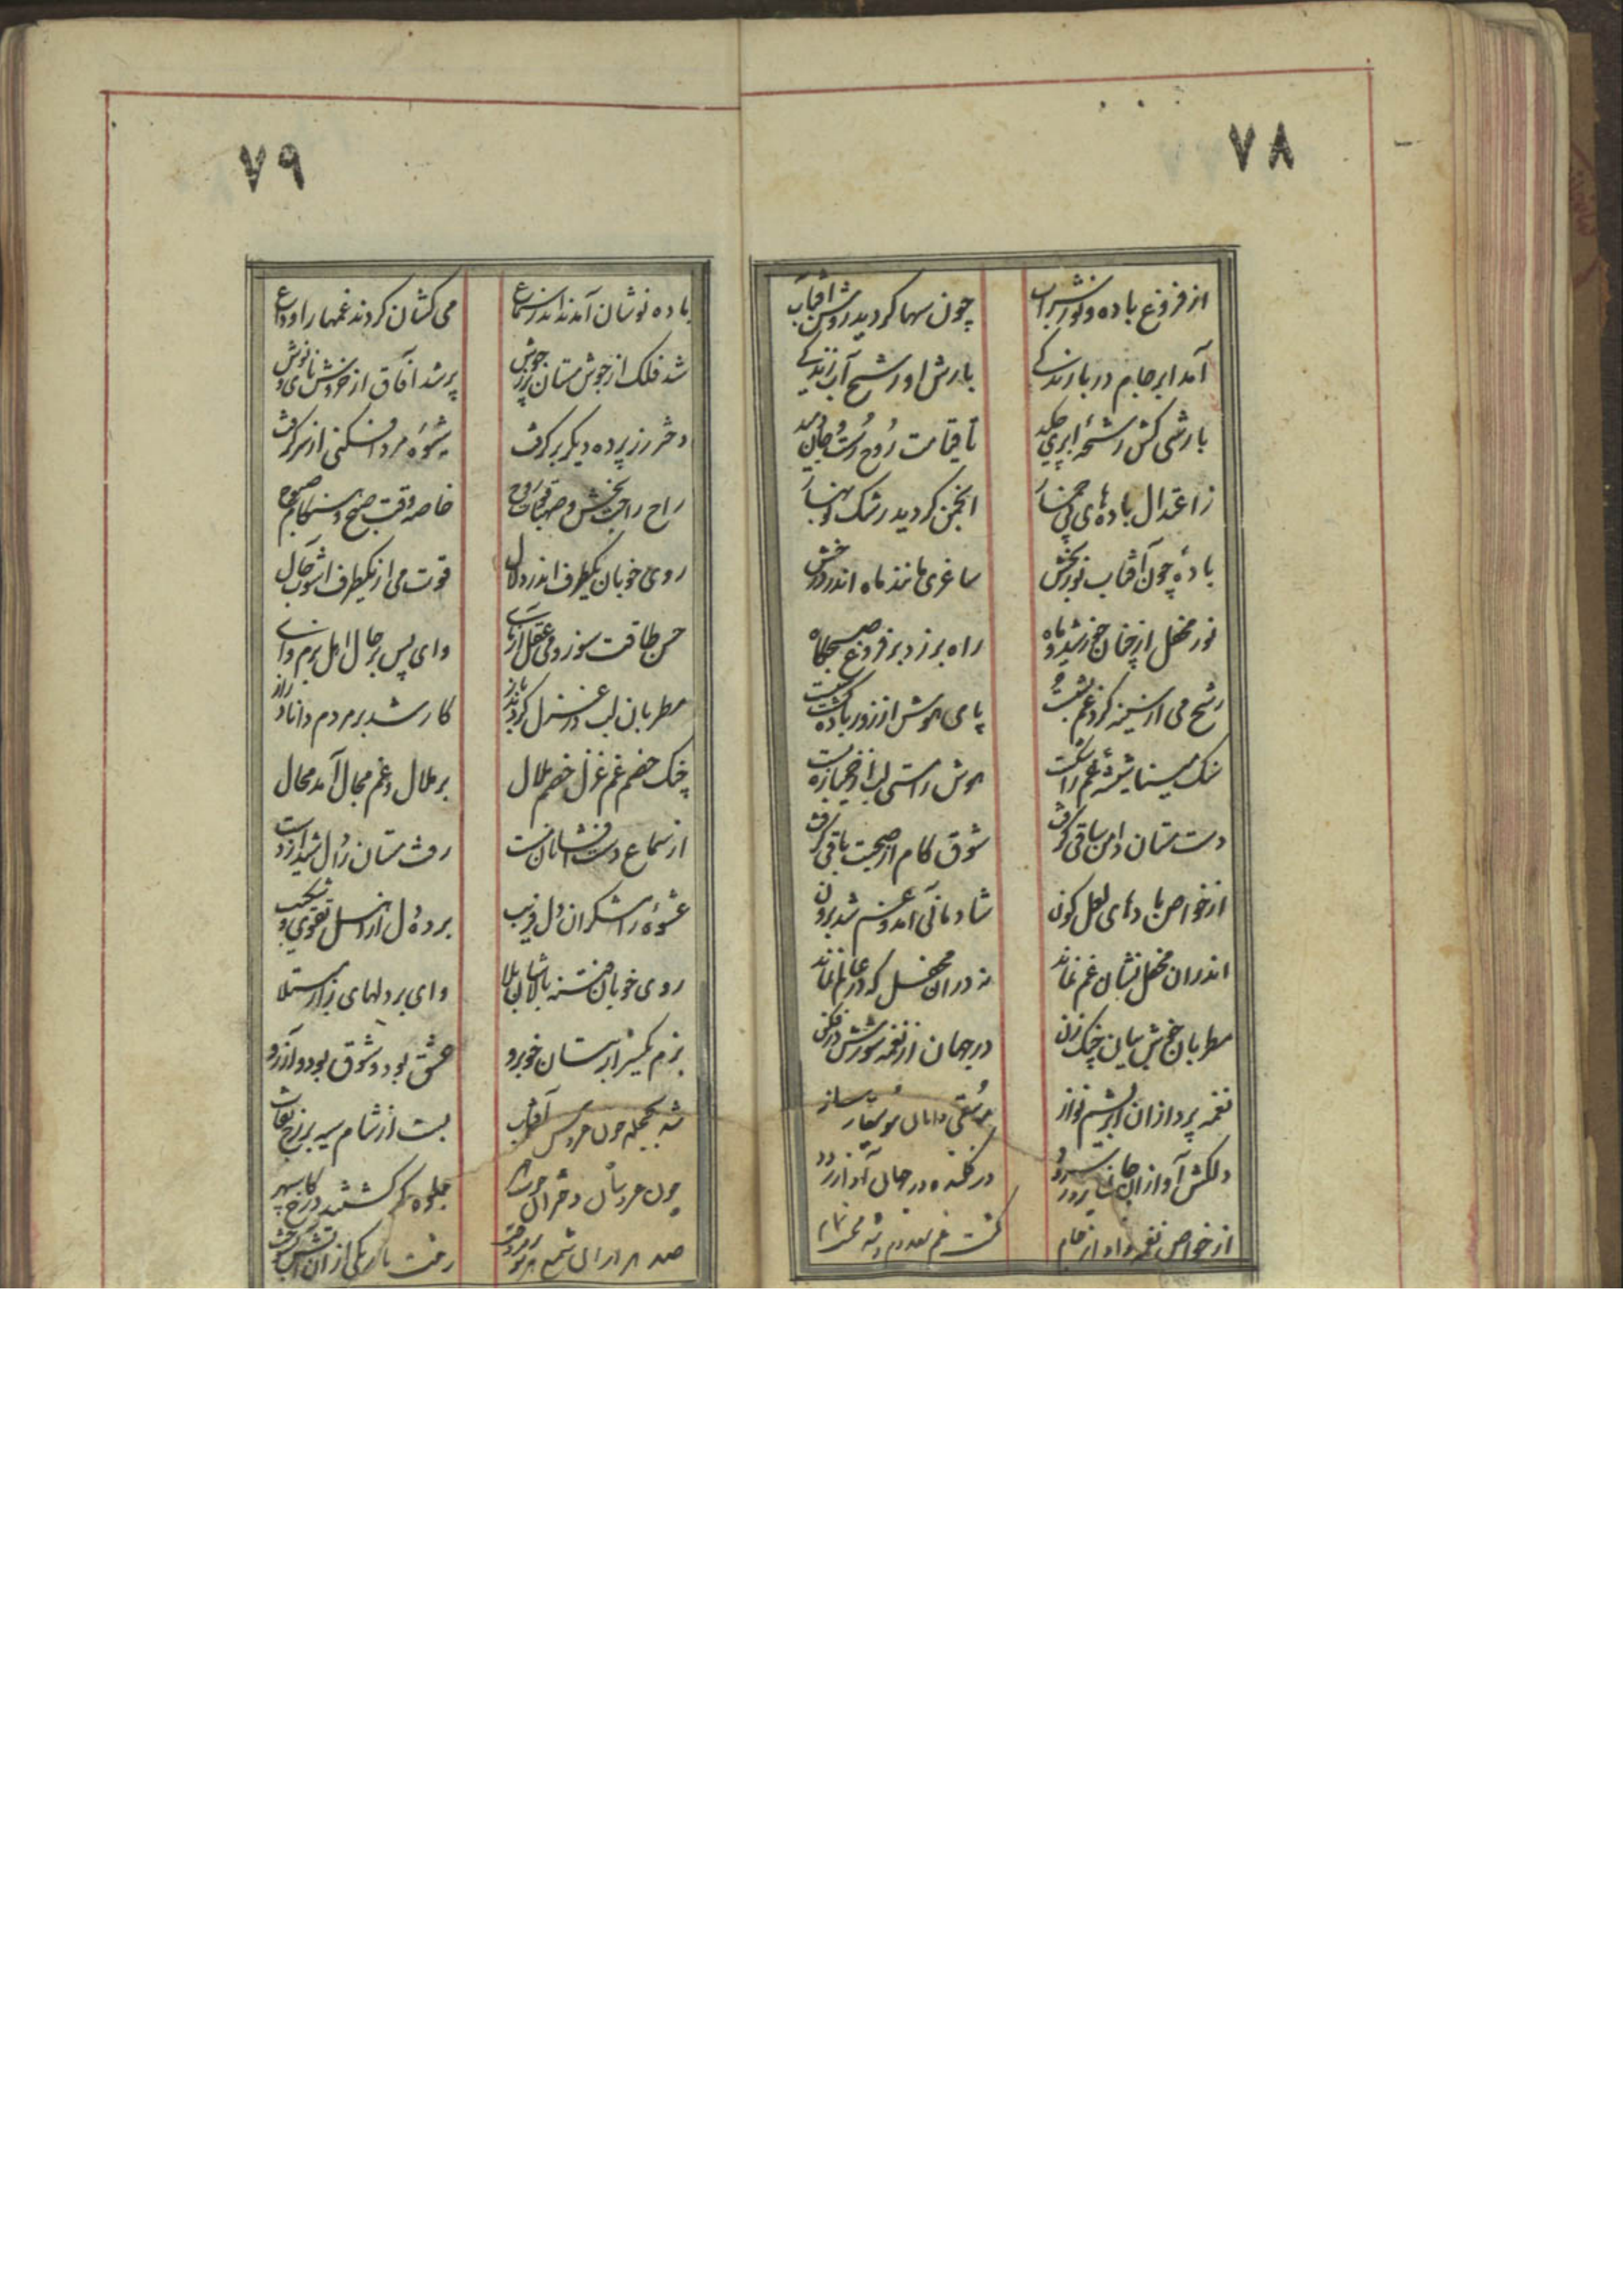 ۷۸
از فروغ باده و نور شراب
چون سها گردید روشن آفتاب
آمد ابر جام در بارندگی
بارش او رشح آب زندگی
بارشی کش رشحهٔ ابری چکد
تا قیامت روح رست و جان دمد
ز اعتدال بادهای
انجمن گردید رشک نوبهار
بادهٔ چون آفتاب نوربخش
ساغری مانند ماه اندر درخش
نور محفل از رخان خورشید و ماه
راه برزد بر فروغ صبحگاه
رشح می از سینه گرد غم بشست
پای هوش از زور باده گشت سست
سنگ مینا شیشهٔ غم را شکست
هوش را مستی لب از خمیازه بست
دست مستان دامن ساقی گرفت
شوق کام از صحبت باقی گرفت
از خواص بادهای لعل گون
شادمانی آمد و غم شد برون
اندران محفل نشان غم نماند
نه دران محفل که در عالم نماند
مطربان خوش بیان چنگ زن
در جهان از نغمه شورش در فکن
نغمه پردازان ابریشم نواز
موسقی دانان موسیقار ساز
دلکش آوازان جان پرور سرود
در فکنده در جهان آواز رود
از خواص نغمه و آواز
گشت غم معدوم و شد
۷۹
باده نوشان آمدند اندر سماع
می کشان کردند غمها را وداع
شد فلک از جوش مستان پر ز جوش
پر شد آفاق از خروش نای و نوش
دختر رز پرده دیگر برگرفت
شیوهٔ مرد افکنی از سر گرفت
راح راحت بخش و صهبا قوت روح
خاصه وقت صبح و هنگام صبوح
روی خوبان یکطرف اندر دلال
قوت می از یکطرف آشوب حال
حسن طاقت سوز و می عقل آزمای
وای پس بر حال اهل بزم وای
مطربان لب در غزل کردند باز
کار شد بر مردم دانا دراز
چنگ خصم غم غزل خصم ملال
بر ملال و غم مجال آمد محال
از سماع و دست افشان نشست
رفت مستان را دل شیدا ز دست
عشوهٔ رامشگران دل فریب
برده دل از اهل تقوی و شکیب
روی خوبان فتنه بالاشان بلا
وای بر دلهای زار مبتلا
بزم یکسر از بتان خوبرو
عشق بود و شوق بود و آرزو
شد بحجله چون عروس آفتاب
بست از شام سیه بر رخ نقاب
چون عروسان دختران
جلوه گر گشتند در کاخ سپهر
صد هزاران شمع
رخت تاریکی ازان آتش بسوخت